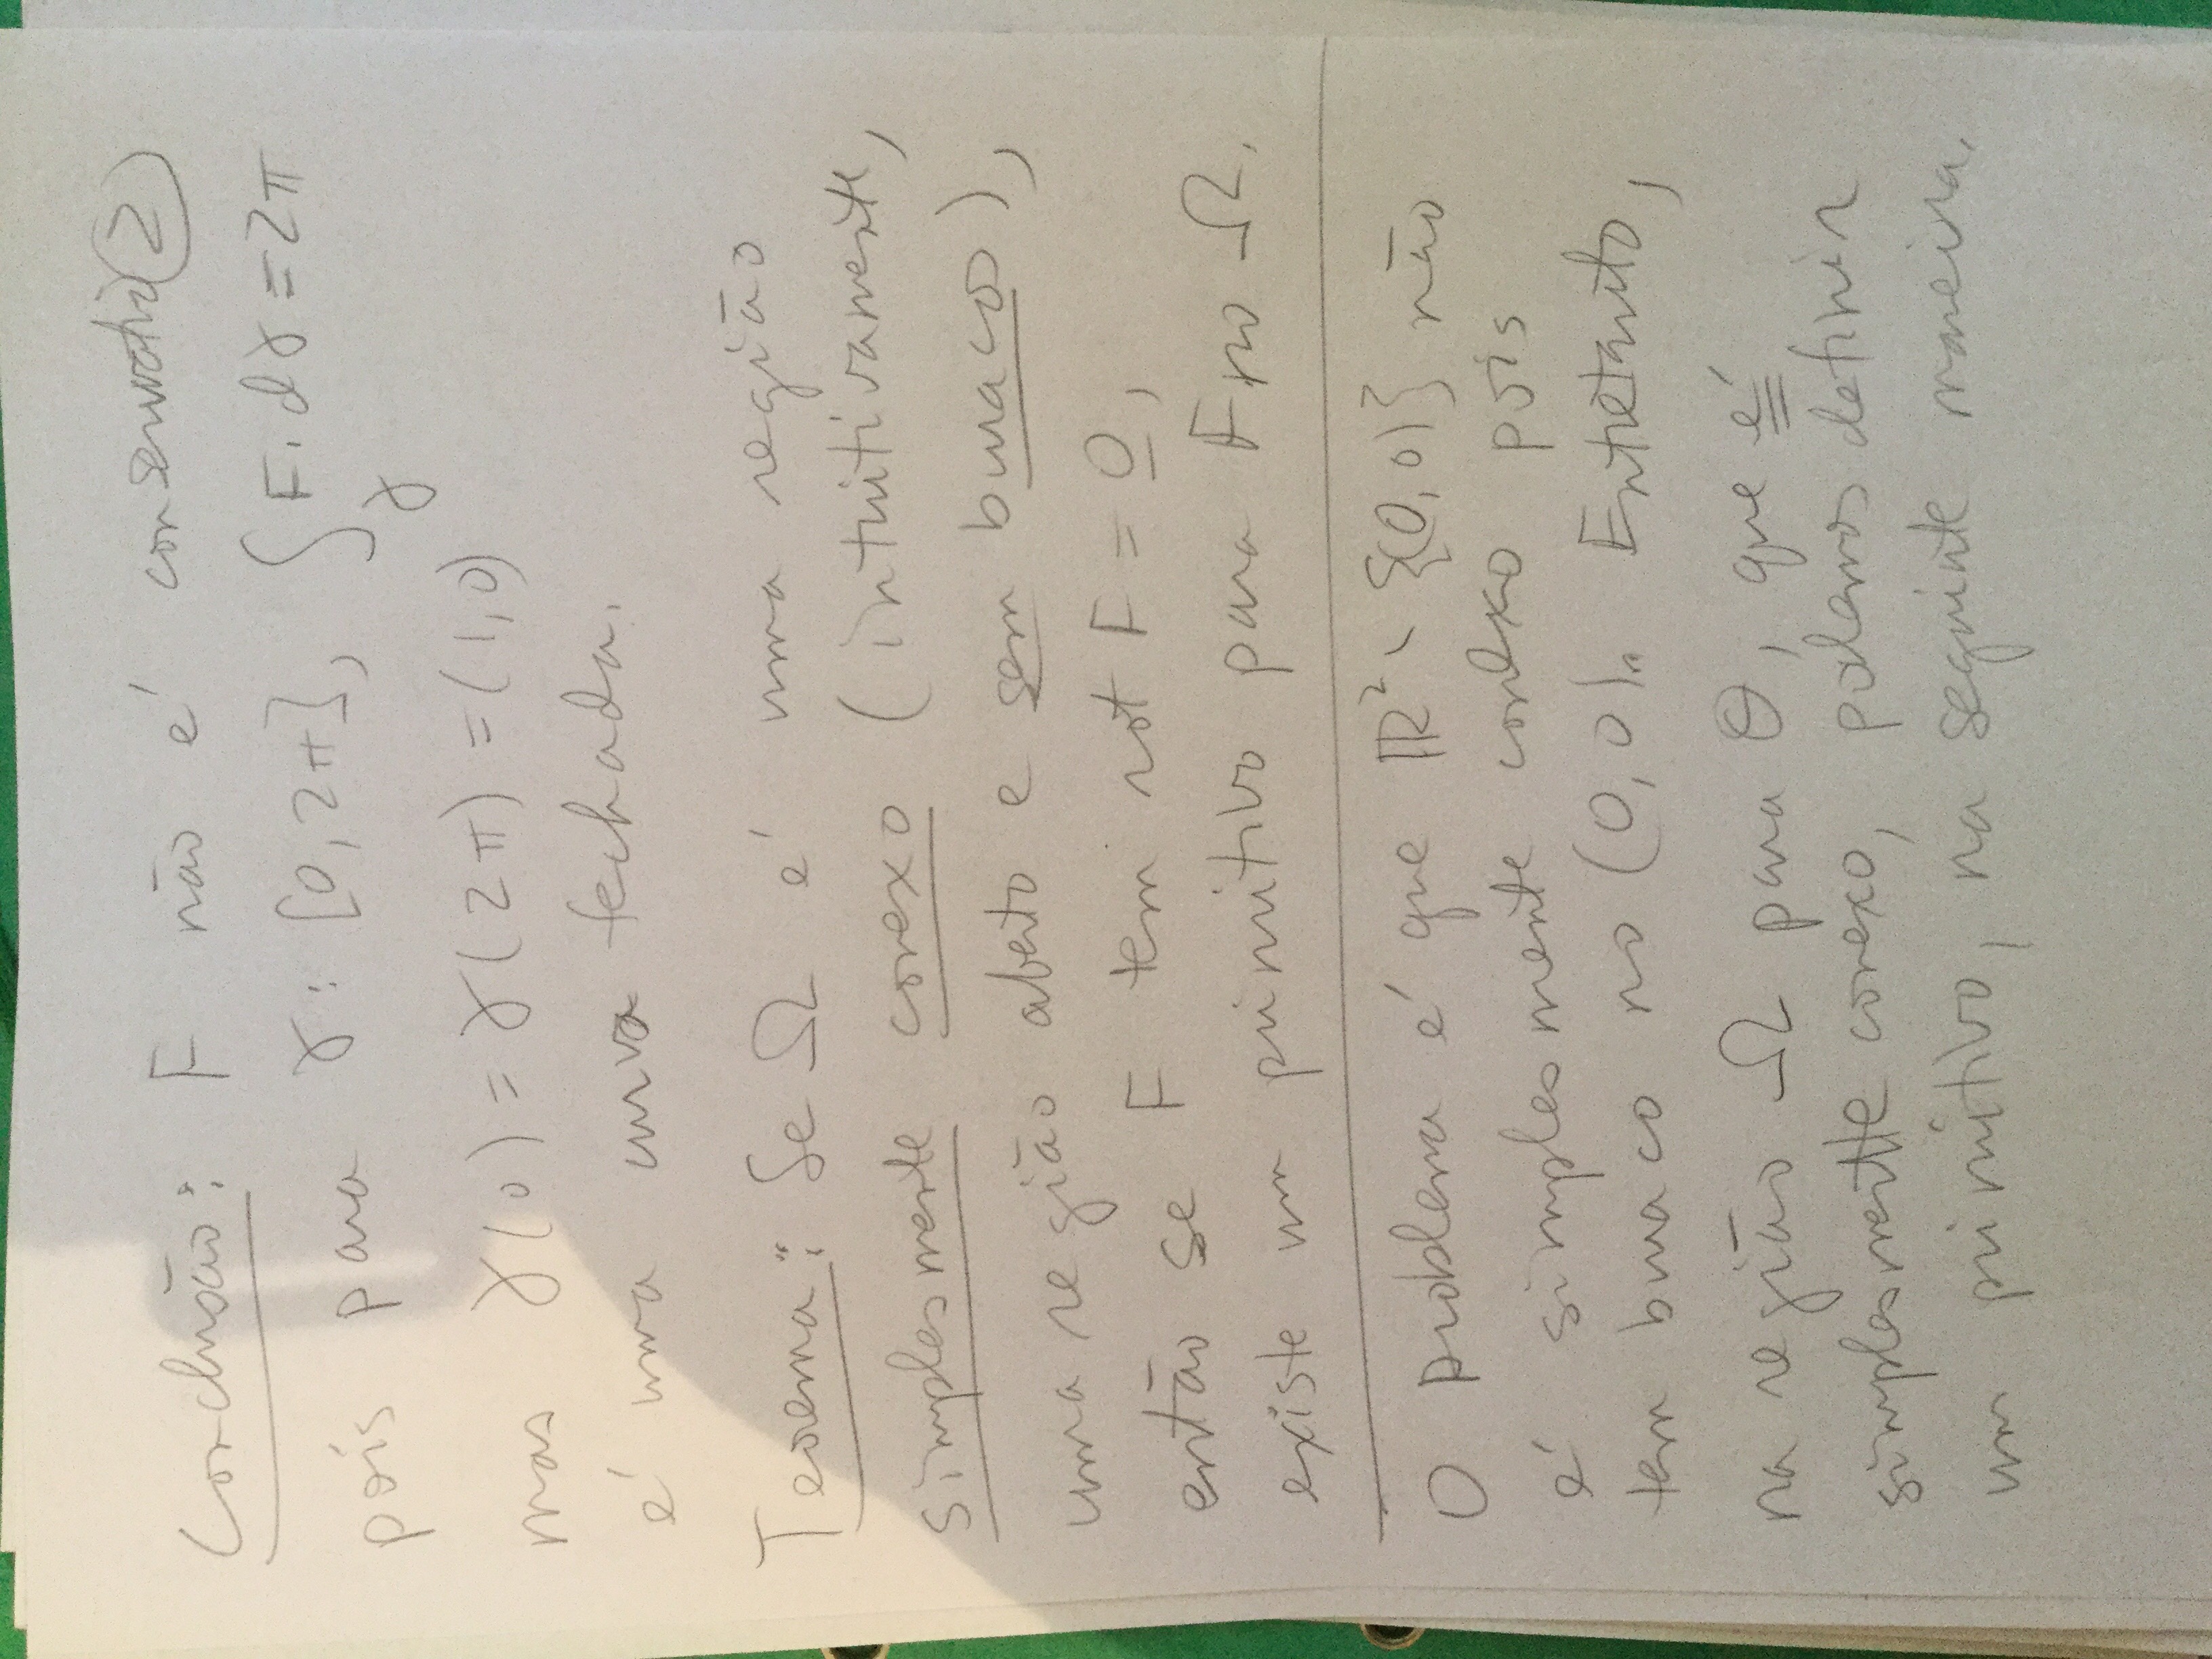 Conclusão: F não é conservativo ②
pois para γ: [0, 2π], ∫_γ F. dγ = 2π
mas γ(0) = γ(2π) = (1,0)
é uma curva fechada.
Teorema: Se Ω é uma região
simplesmente conexo (intuitivamente,
uma região aberto e sem buraco),
então se F tem rot F = 0,
existe um primitivo para F no Ω.
O problema é que ℝ² \ {(0,0)} não
é simplesmente conexo pois
tem buraco no (0,0). Entretanto,
na região Ω para θ, que é
simplesmente conexo, podemos definir
um primitivo, na seguinte maneira.